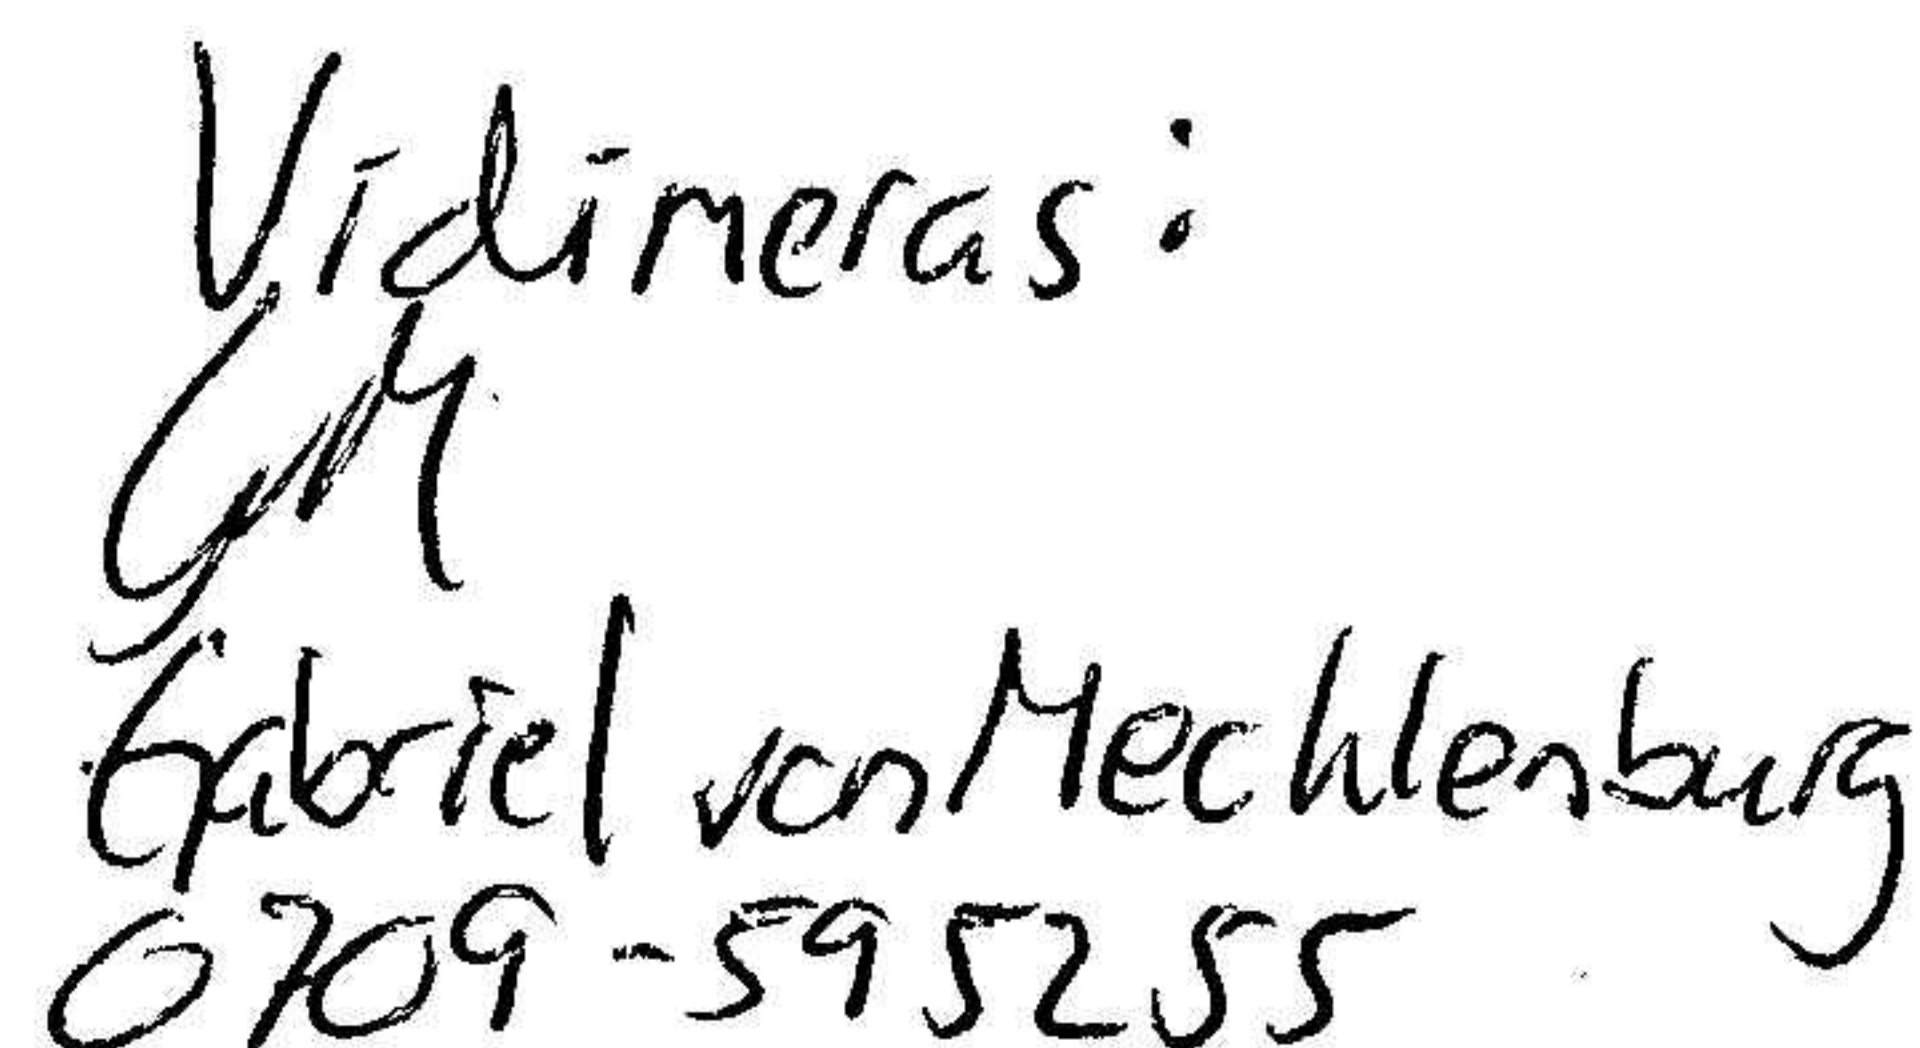 Vidimeras:
GM
Gabriel von Mecklenburg
0709-595255